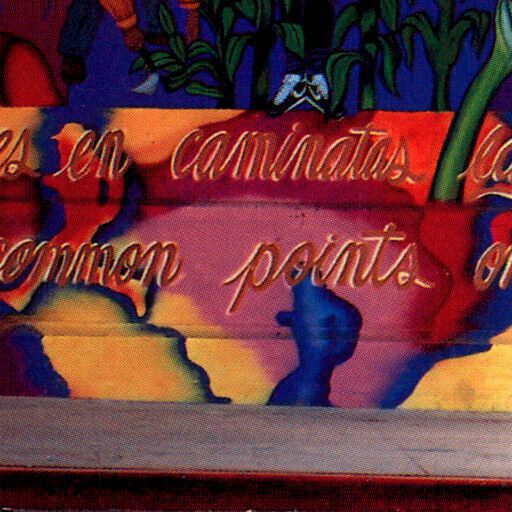 es en caminatas
common points on